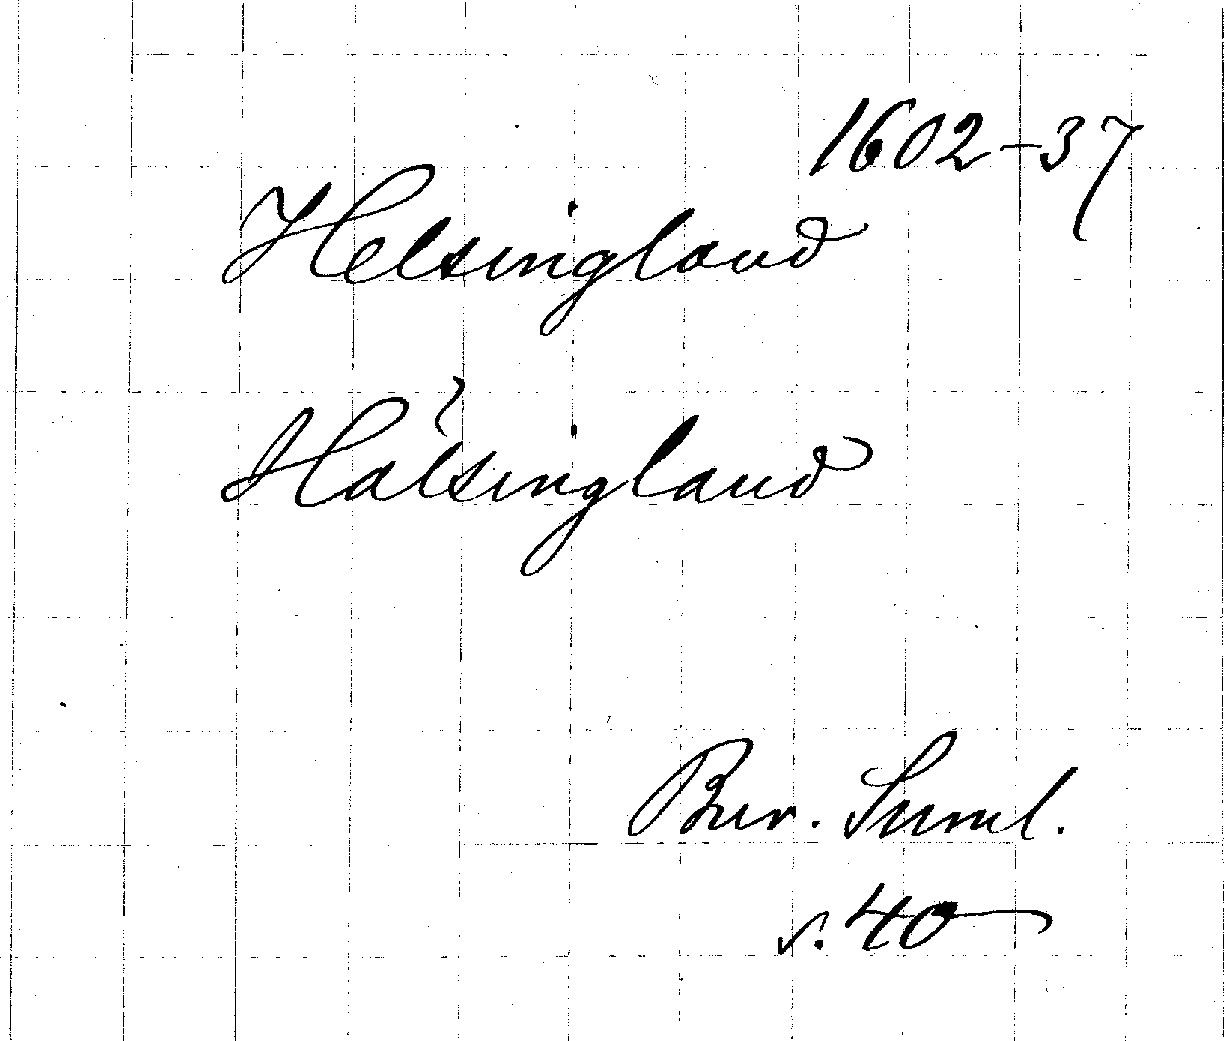 1602-37
Helsingland
Hälsingland
Bur. Suml.
s. 40